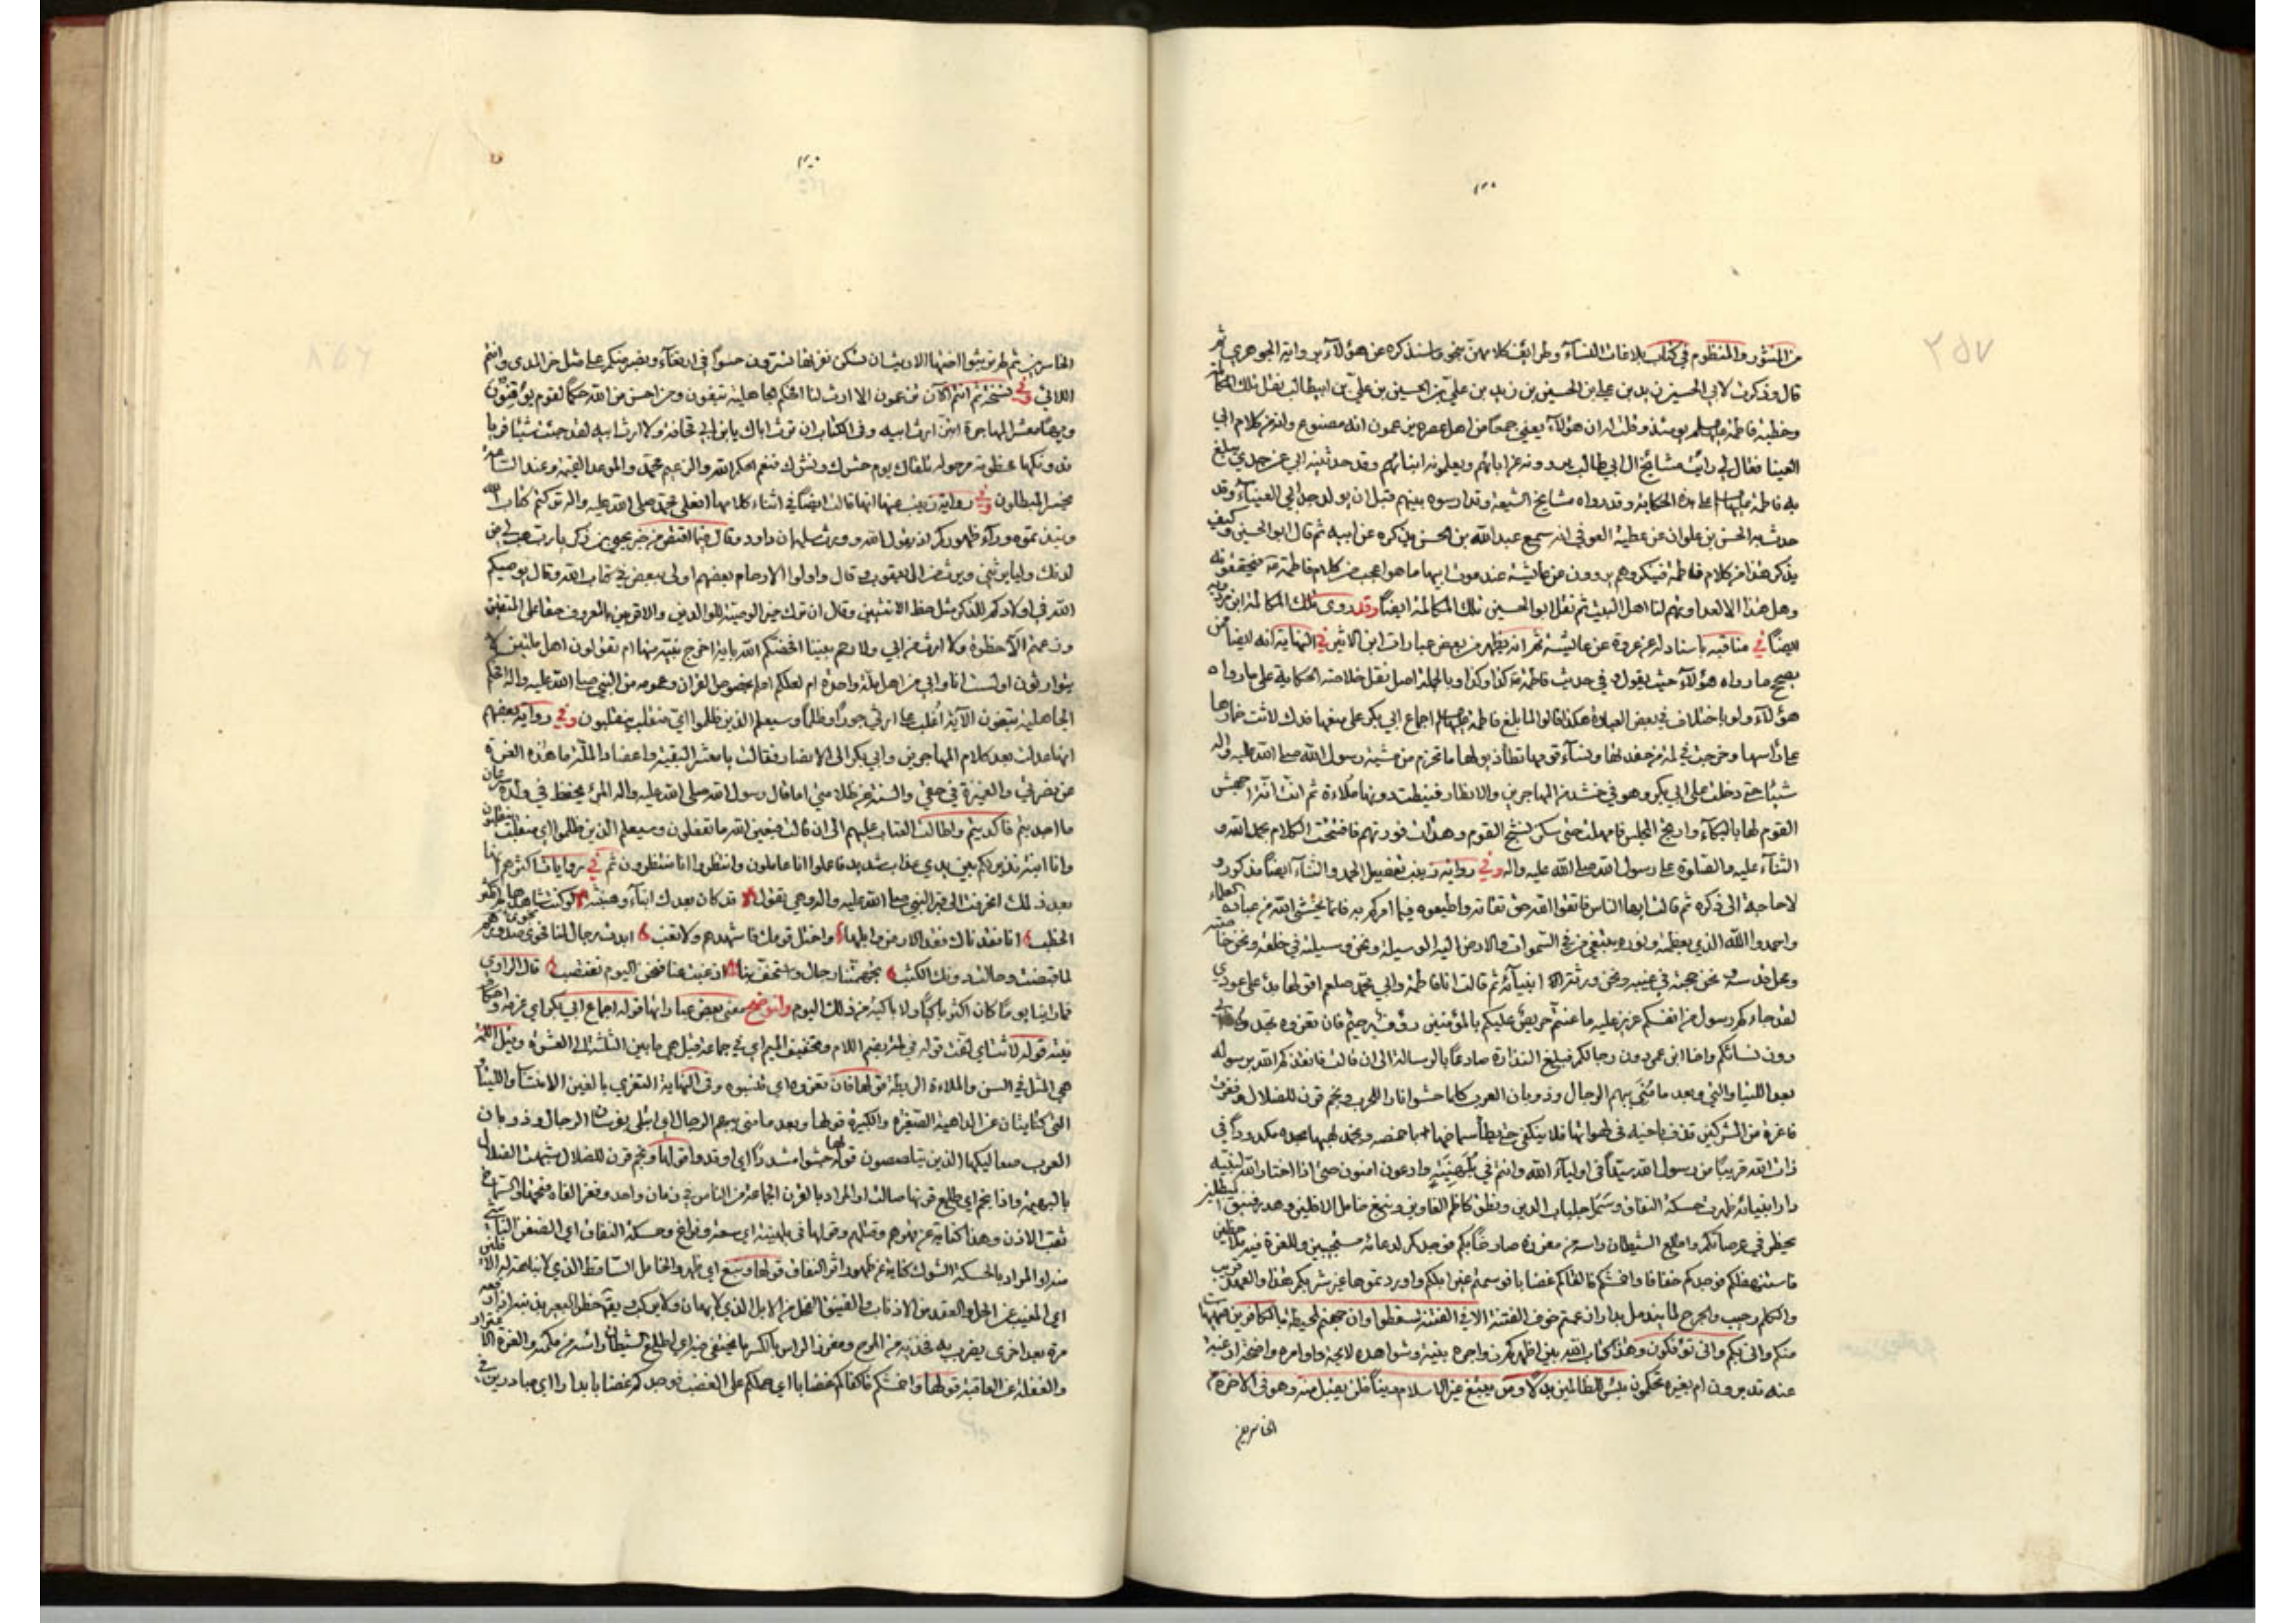 ٢٥٧
من المنثور والمنظوم في كتاب بلاغات النساء وطرائف كلامهن بنحو ما سنذكره عن هؤلاء من رواية الجوهري ثم
قال وذكرت لابي الحسين زيد بن علي بن الحسين بن زيد بن علي بن الحسين بن علي بن ابيطالب نقل تلك
وخطبة فاطمة يومئذ وقلت له ان هؤلاء يعني جمعا من اهل عصره يزعمون انه مصنوع وانه من كلام ابي
العينا فقال لي رايت مشايخ ال ابي طالب يروونه عن ابائهم ويعلمونه ابنائهم وقد حدثنيه ابي عن جدي يبلغ
به فاطمة على هذه الحكاية وقد رواه مشايخ الشيعة وتدارسوه بينهم قبل ان يولد جد ابي العيناء وقد
حدث به الحسن بن علوان عن عطية العوفي انه سمع عبد الله بن الحسن يذكره عن ابيه ثم قال ابو الحسين وكيف
يذكر هذا من كلام فاطمة فينكروه وهم يروون من عايشة عند موت ابيها ما هو اعجب من كلام فاطمة
وهل هذا الا لعداوتهم لنا اهل البيت ثم نقل ابو الحسين تلك المكالمة ايضا وقد روى تلك المكالمة ابن مردويه
ايضا في مناقبه باسناد له عن عروة عن عائشة ثم انه يظهر من بعض عبارات ابن الاثير في النهاية انه ايضا ممن
يصحح ما رواه هؤلاء حيث يقول وفي حديث فاطمة كذا وكذا وبالجملة اصل نقل خلاصة الحكاية على ما رواه
هؤلاء ولو باختلاف في بعض العبارة هكذا قالوا لما بلغ فاطمة اجماع ابي بكر على منعها فدك لاثت خمارها
على راسها وخرجت في لمة من حفدتها ونساء قومها تطأ ذيولها ما تخرم من مشية رسول الله صلى الله عليه واله
شيئا حتى دخلت على ابي بكر وهو في حشد من المهاجرين والانصار فنيطت دونها ملاءة ثم انت انة اجهش
القوم لها بالبكاء وارتج المجلس فامهلت حتى سكن نشيج القوم وهدات فورتهم فافتتحت الكلام بحمد الله و
الثناء عليه والصلوة على رسول الله صلى الله عليه واله وفي رواية زينب تفصيل الحمد والثناء ايضا مذكور و
لا حاجة الى ذكره ثم قالت ايها الناس فاتقوا الله حق تقاته واطيعوه فيما امركم به فانما يخشى الله من عباده العلماء
واحمدوا الله الذي بعظمته ونوره يبتغي من في السموات والارض اليه الوسيلة ونحن وسيلته في خلقه ونحن خاصته
ومحل قدسه ونحن حجته في غيبه ونحن ورثة انبيائه ثم قالت انا فاطمة وابي محمد صلعم اقولها بدء على عودي
لقد جاءكم رسول من انفسكم عزيز عليه ما عنتم حريص عليكم بالمؤمنين رؤف رحيم فان تعزوه تجدوه ابي
دون نسائكم واخا ابن عمي دون رجالكم فبلغ النذارة صادعا بالرسالة الى ان قالت فانقذكم الله برسوله
بعد اللتيا والتي وبعد ما مني ببهم الرجال وذوبان العرب كلما حشوا نارا للحرب ونجم قرن للضلال وفغرت
فاغرة من المشركين قذف باخيه في لهواتها فلا ينكفي حتى يطأ صماخها باخمصه ويخمد لهبها بحده مكدودا في
ذات الله قريبا من رسول الله سيدا في اولياء الله وانتم في بلهنية وادعون امنون حتى اذا اختار الله لنبيه
دار انبيائه ظهرت حسكة النفاق وشمل جلباب الدين ونطق كاظم الغاوين ونبغ خامل الافلين وهدر فنيق المبطلين
يخطر في عرصاتكم واطلع الشيطان راسه من مغرزه صارخا بكم فوجدكم لدعائه مستجيبين وللغرة فيه ملاحظين
فاستنهضكم فوجدكم خفافا واحمشكم فالفاكم غضابا فوسمتم غير ابلكم واوردتموها غير شربكم هذا والعهد قريب
والكلم رحيب والجرح لما يندمل بدارا زعمتم خوف الفتنة الا في الفتنة سقطوا وان جهنم لمحيطة بالكافرين فهيهات
منكم وانى بكم وانى تؤفكون وهذا كتاب الله بين اظهركم زواجره بينة وشواهده لايحة واوامره واضحة ارغبة
عنه تدبرون ام بغيره تحكمون بئس للظالمين بدلا ومن يبتغ غير الاسلام دينا فلن يقبل منه وهو في الاخرة من
الخاسرين
الخاسرين ثم لم تريثوا اختها الا ريثما ان تسكن نفرتها تسرون حسوا في ارتغاء ونصبر منكم على مثل حز المدى وانتم
اللائي وفي نسخة ثم انتم الان تزعمون الا ارث لنا افحكم الجاهلية تبغون ومن احسن من الله حكما لقوم يوقنون
ويها معشر المهاجرة ابتز ارث ابيه وفي الكتاب ان ترث اباك يابن ابي قحافة ولا ارث ابيه لقد جئت شيئا فريا
فدونكها مخطومة مرحولة تلقاك يوم حشرك ونشرك فنعم الحكم الله والزعيم محمد والموعد القيمة وعند الساعة
يخسر المبطلون وفي رواية زينب عنها انها قالت ايضا في اثناء كلامها افعلى محمد صلى الله عليه واله تركتم كتاب الله
ونبذتموه وراء ظهوركم اذ يقول الله وورث سليمان داود وقال فيما اقتص من خبر يحيى بن زكريا رب هب لي من
لدنك وليا يرثني ويرث من ال يعقوب وقال واولوا الارحام بعضهم اولى ببعض في كتاب الله وقال يوصيكم
الله في اولادكم للذكر مثل حظ الانثيين وقال ان ترك خيرا الوصية للوالدين والاقربين بالمعروف حقا على المتقين
وزعمتم الا حظوة ولا ارث من ابي ولا رحم بيننا افخصكم الله باية اخرج نبيه منها ام تقولون اهل ملتين لا
يتوارثون اولست انا وابي من اهل ملة واحدة ام لعلكم اعلم بخصوص القران وعمومه من النبي صلى الله عليه واله افحكم
الجاهلية تبغون الاية ااغلب على ارثي جورا وظلما وسيعلم الذين ظلموا اي منقلب ينقلبون وفي رواية بعضهم
انها عدلت بعد كلام المهاجرين وابي بكر الى الانصار فقالت يا معشر البقية واعضاد الملة ما هذه الغميزة
عن نصرتي والغميزة في حقي والسنة عن ظلامتي اما قال رسول الله صلى الله عليه واله المرء يحفظ في ولده سرعان
ما اجدبتم فاكديتم واطالت العتاب عليهم الى ان قالت فبعين الله ما تفعلون وسيعلم الذين ظلموا اي منقلب ينقلبون
وانا ابنة نذير لكم بين يدي عذاب شديد فاعملوا انا عاملون وانتظروا انا منتظرون ثم في روايات اكثرهم انها
بعد ذلك انحرفت الى قبر النبي صلى الله عليه واله وهي تقول قد كان بعدك انباء وهنبثة لو كنت شاهدها لم تكثر
الخطب انا فقدناك فقد الارض وابلها واختل قومك فاشهدهم ولا تغب ابدت رجال لنا فحوى صدورهم
لما قضيت وحالت دونك الكثب تجهمتنا رجال واستخف بنا اذ غبت عنا فنحن اليوم نغتصب قال الراوي
فما راينا يوما كان اكثر باكيا ولا باكية من ذلك اليوم ولنوضح معنى بعض عباراتها قوله اجماع ابي بكر اي عزمه واحكام
نيته قوله لاثت اي لفت قوله في لمة بضم اللام وتخفيف الميم اي في جماعة قيل هي ما بين الثلثة الى العشرة وقيل اللمة
هي المثل في السن والملاءة الريطة قولها فان تعزوه اي تنسبوه وفي النهاية التعزي بالغير الانتساب واللتيا و
التي كنايتان عن الداهية الصغيرة والكبيرة قولها وبعد ما مني ببهم الرجال اي ابتلي بفرسان الرجال وذوبان
العرب صعاليكها الذين يتلصصون قولها حشوا مشددا اي اوقدوا قولها ونجم قرن للضلال شبهت الضلال
بالبهيمة واذا نجم اي طلع قرنها صالت او المراد بالقرن الجماعة من الناس في زمان واحد وفغر الفاه فتحها والصماخ
ثقب الاذن وهذا كناية عن قهرهم وقتلهم وقولها في بلهنية اي سعة وفراغ وحسكة النفاق اي الضغن
منه او المراد بالحسكة الشوك كناية عن ظهور اثر النفاق قولها ونبغ اي ظهر والخامل الساقط الذي لا نباهة له
مرة بعد اخرى يضرب به فخذيه من المرح ومغرز الراس بالكسر ما يختفي فيه اي اطلع الشيطان راسه من مكمنه والغرة
والغفلة عن العاقبة قولها واحمشكم فالفاكم غضابا اي حملكم على الغضب فوجدكم غضابا بدارا اي مبادرين